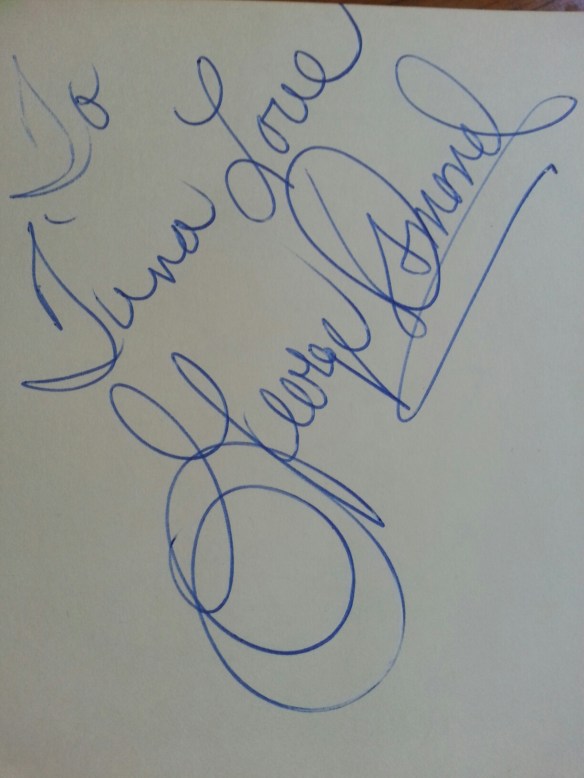 To
Tina Love
George Osmond